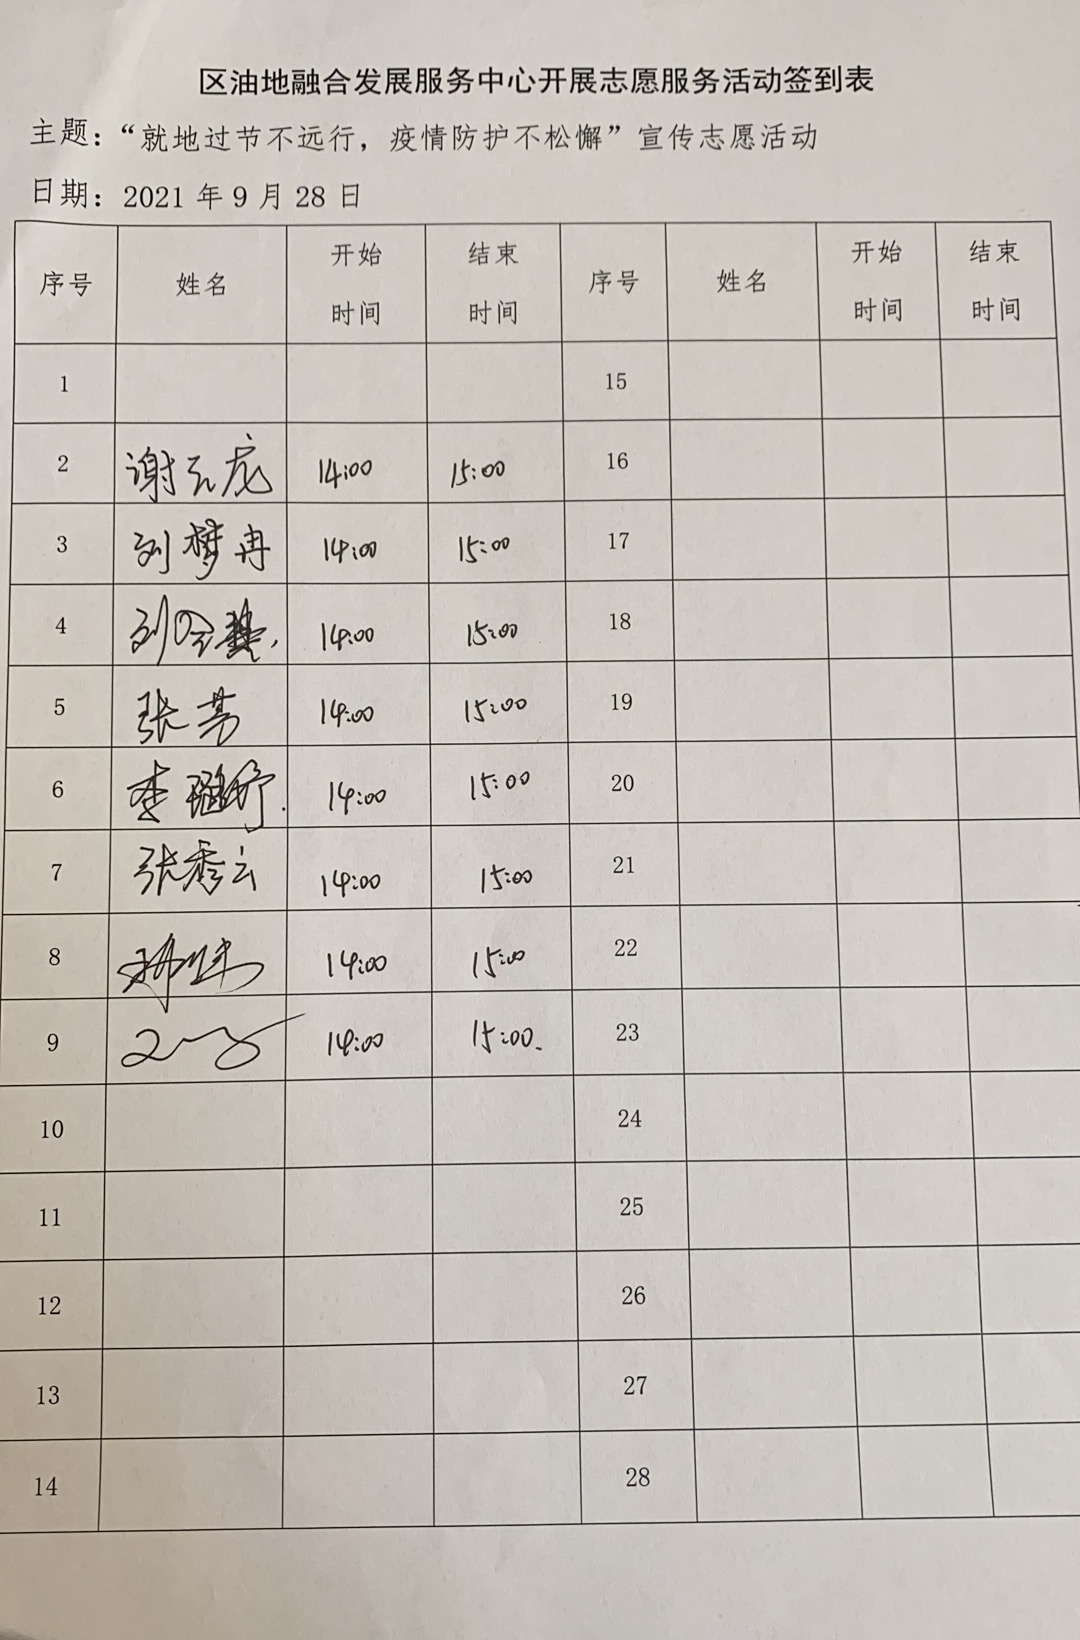 区油地融合发展服务中心开展志愿服务活动签到表
主题：“就地过节不远行，疫情防护不松懈”宣传志愿活动
日期：2021 年 9 月 28 日
序号 姓名 开始时间 结束时间 序号 姓名 开始时间 结束时间
1 15
2 谢 14:00 15:00 16
3 刘梦冉 14:00 15:00 17
4 刘 14:00 15:00 18
5 张 14:00 15:00 19
6 李 14:00 15:00 20
7 张秀云 14:00 15:00 21
8 14:00 15:00 22
9 14:00 15:00. 23
10 24
11 25
12 26
13 27
14 28